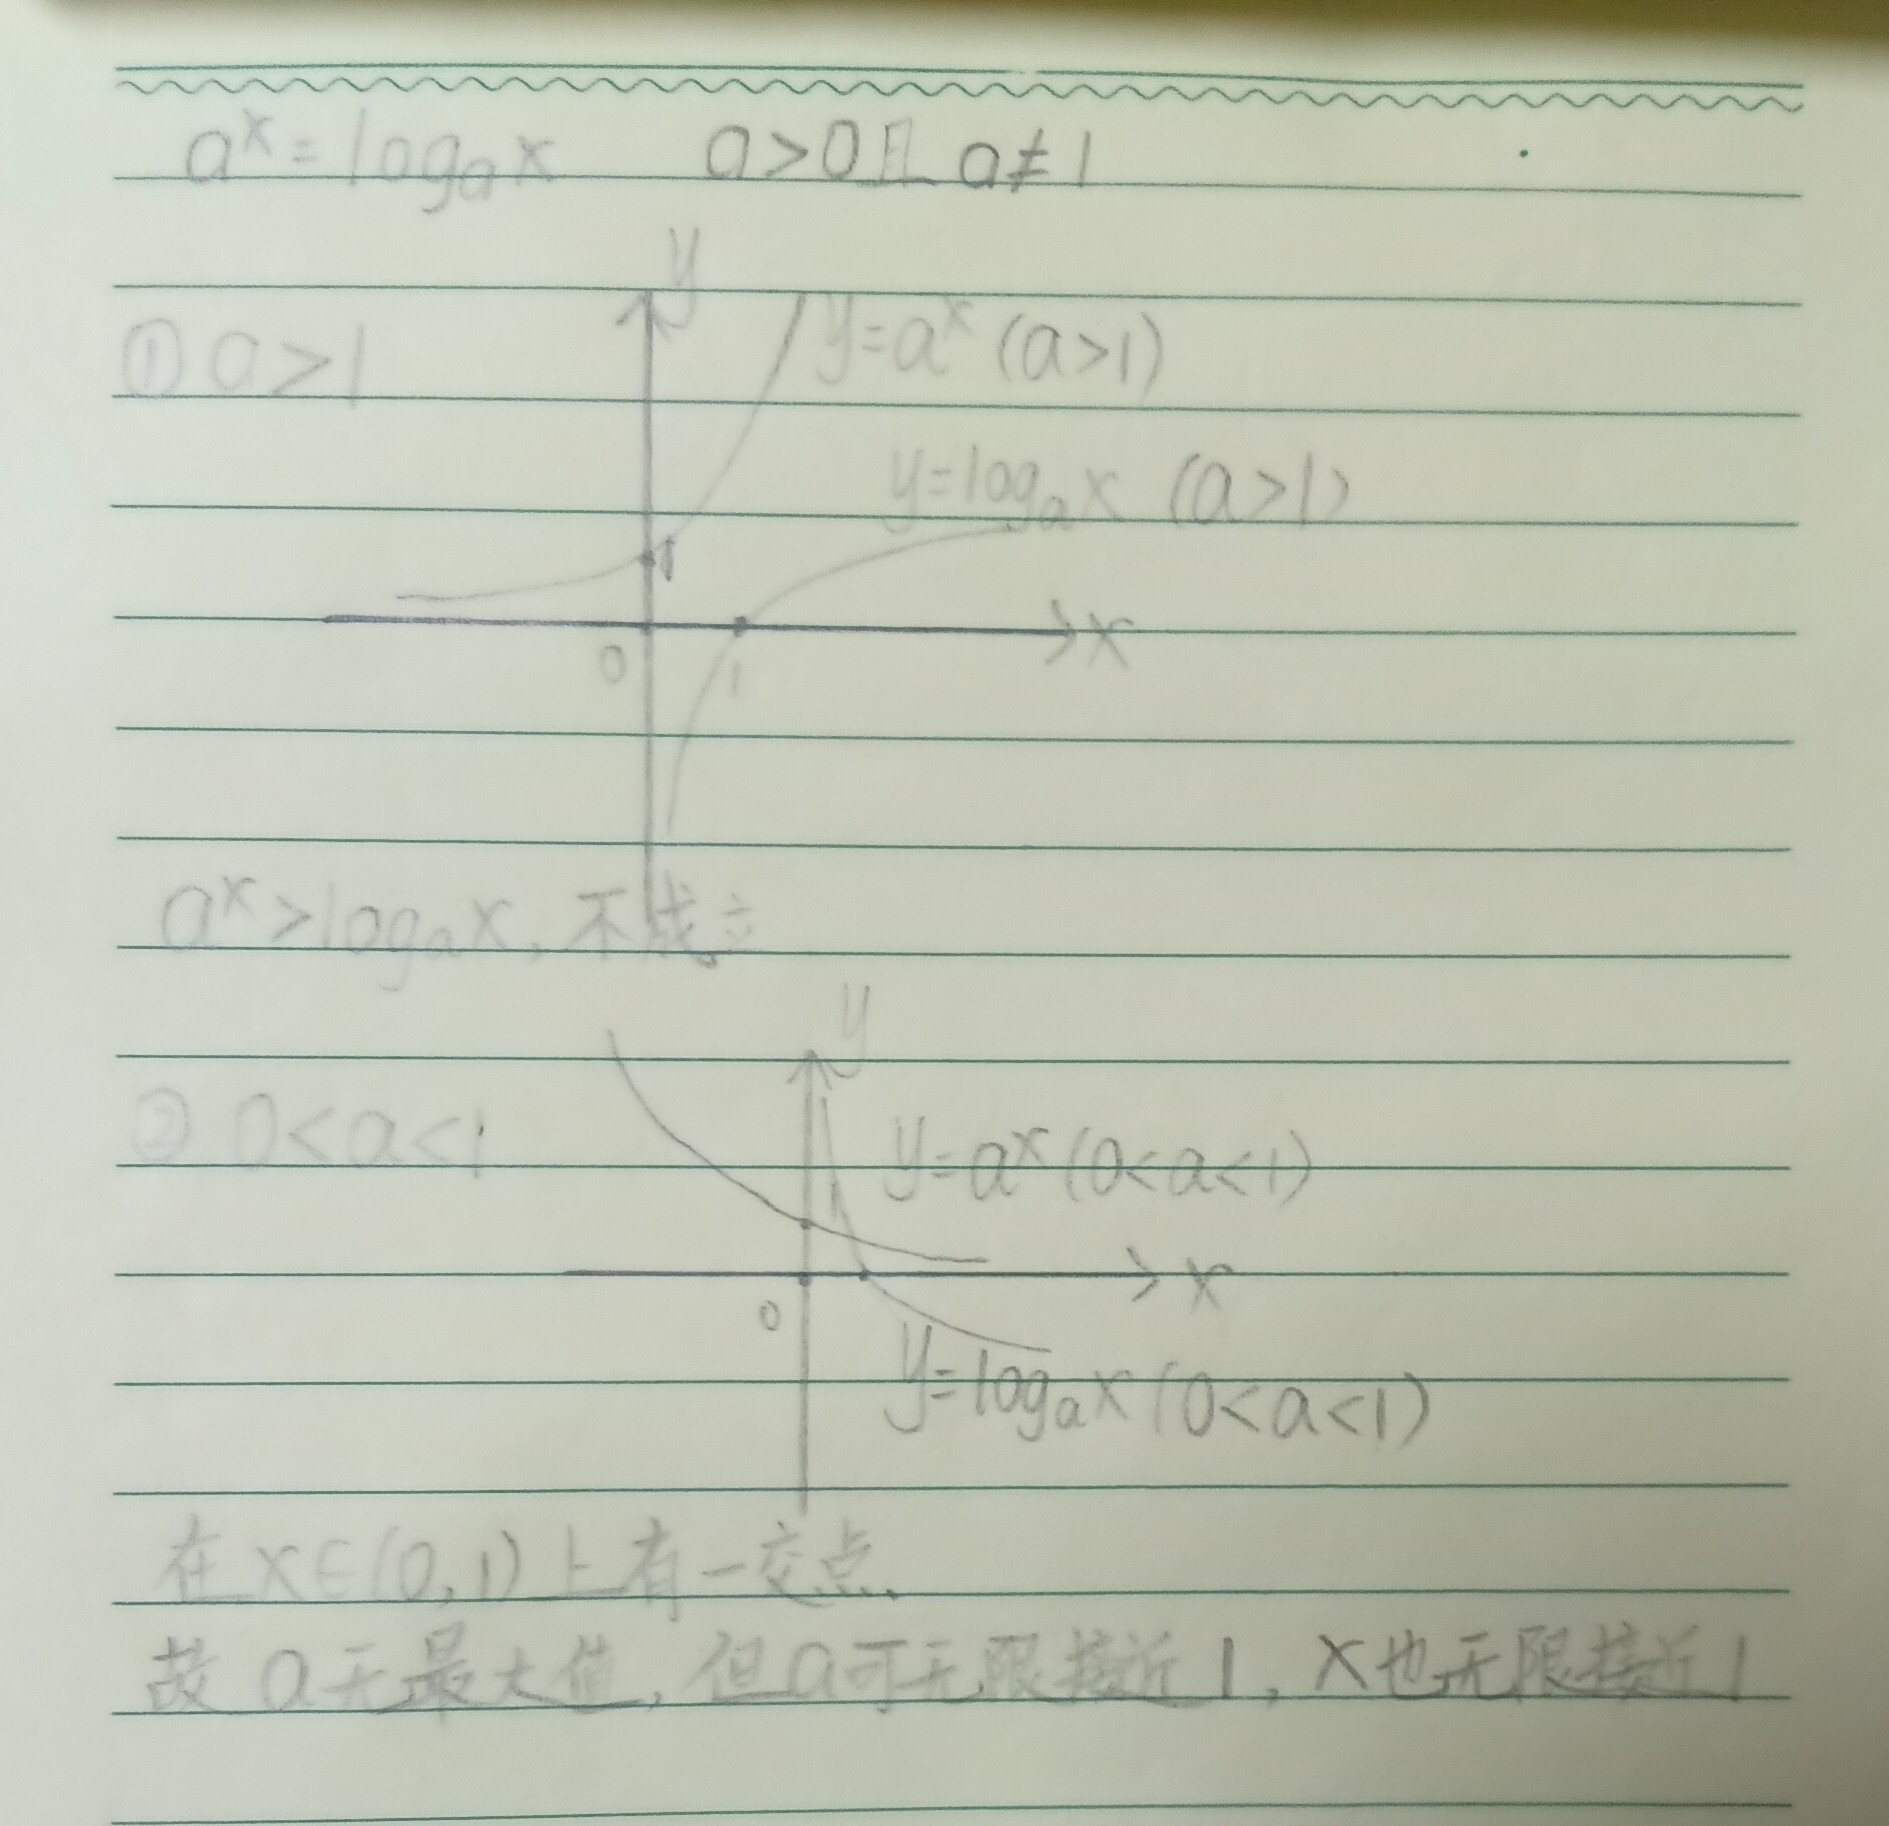 aˣ=logₐx a>0且 a≠1
y
①a>1
y=aˣ (a>1)
y=logₐx (a>1)
1
x
0 1
aˣ>logₐx,不成立
y
②0<a<1
y=aˣ(0<a<1)
x
0
y=logₐx(0<a<1)
在x∈(0,1)上有一交点、
故a无最大值,但a可无限接近1,x也无限接近1